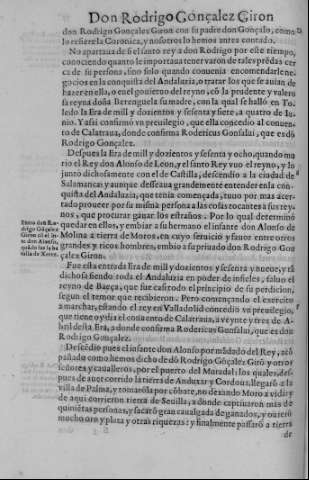 Don Rodrigo Gonçalez Giron
don Rodrigo Gonçalez Giron con su padre don Gonçalo, como
lo refiere la Coronica, y nosotros lo hemos antes contado.
No apartaua de si el santo rey a don Rodrigo por este tiempo,
conociendo quanto le importaua tener varon de tales prẽdas cer
ca de su persona, sino solo quando conuenia encomendarle ne-
gocios en la conquista del Andaluzia, o tratar los que se auian de
hazer en ella, o en el gouierno del reyno, cõ la prudente y valero
sa reyna doña Berenguela su madre, con la qual se hallò en To-
ledo la Era de mill y dozientos y sesenta y siete, a quatro de Iu-
nio. Y assi confirmò vn preuilegio, que ella concedio al conuen-
to de Calatraua, donde confirma Rodericus Gonsalui, que es dõ
Rodrigo Gonçalez.
Despues la Era de mill y dozientos y sesenta y ocho, quando mu
rio el Rey don Alonso de Leon, y el santo Rey vuo el reyno, y lo
juntò dichosamente con el de Castilla, descendio a la ciudad de
Salamanca: y aunque desseaua grandemente entender en la con-
quista del Andaluzia, que tenia començada, tuuo por mas acer-
tado proueer por su misma persona a las cosas tocantes a sus rey-
nos, que procurar ganar los estraños. Por lo qual determinò
quedar en ellos, y embiar a su hermano el infante don Alonso de
Molina a tierra de Moros, en cuyo seruicio y fauor entre otros
grandes y ricos hombres, embio a su priuado don Rodrigo Gon
çalez Giron.
Entro don Ro-
drigo Gõçalez
Giron cõ el in-
te don Alonso,
quãdo fue la ba
talla de Xerez.
Fue esta entrada Era de mill y dozientos y sesenta y nueue, y la
dichosa siendo toda el Andaluzia en poder de infieles, saluo el
reyno de Baeça, que fue casi todo el principio de su perdicion,
segun el temor que recibieron. Pero començando el exercito
a marchar, estando el rey en Valladolid concedio vn preuilegio,
que tiene oy dia el conuento de Calatraua, a veynte y tres de A-
bril desta Era, a donde confirma Rodericus Gonsalui, que es don
Rodrigo Gonçalez.
Descẽdio pues el infante don Alonso por mãdado del Rey, acõ
pañado como hemos dicho de dõ Rodrigo Gõçalez Girõ y otros
señores y caualleros, por el puerto del Muradal: los quales, des-
pues de auer corrido la tierra de Anduxar y Cordoua, llegarõ a la
villa de Palma, y tomarõla por cõbate, no dexando Moro a vida: y
de aqui corrieron tierra de Seuilla, a donde captiuaron mas de
quiniẽtas personas, y sacarõ gran caualgada de ganados, y ouierõ
mucho oro y plata y otras riquezas: y finalmente passarõ a tierra
de